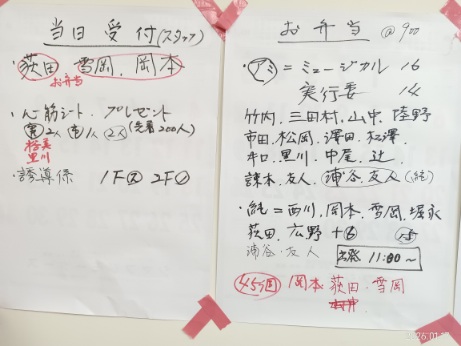 当日受付(スタッフ)
・荻田 雪岡、岡本
お弁当
心筋シート プレゼント
2人 1人 2人 (先着200人)
黒川
・誘導係 1F② 2F
お弁当 @900
・アミ = ミュージカル 16
実行委 14
竹内、三田村、山中、陸野
市田、松岡、澤田、松澤
黒川、中尾、辻
諌本、友人、浦谷、友人(純)
・純 = 西川、岡本、雪岡、堀永
荻田、広野 +⑥ 15
浦谷・友人 出発 11:00~
岡本 荻田・雪岡